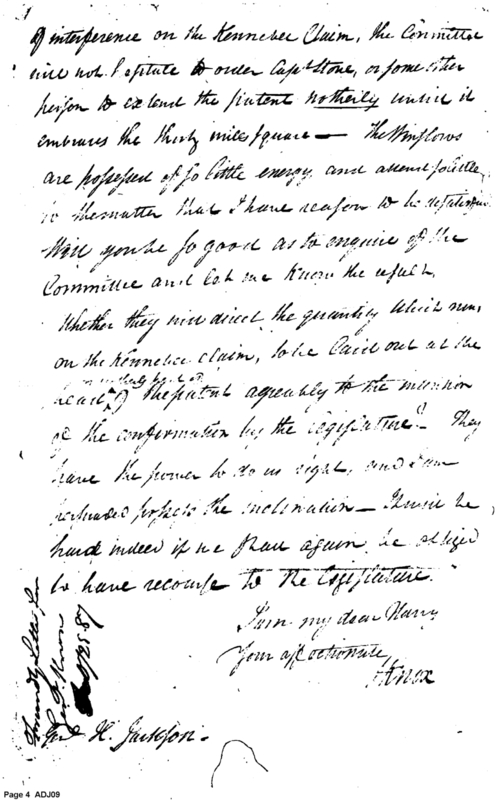 of interference on the Kennebec Claim, the Committee
will not hesitate to order Capt Stone, or some other
person to extend the patent northerly until it
embraces the thirty mile square — The Winslows
are possessed of so little energy and attend so little
to the matter that I have reason to be
Will you be so good as to enquire of the
Committee and let me know the result.
Whether they will direct the quantity which runs
on the Kennebec claim, to be laid out at the
head of the patent agreeably to the intention
of the confirmation by the legislature? They
have the power to do us right, and I am
persuaded possess the inclination — It will be
hard indeed if we shall again be obliged
to have recourse to the Legislature.
I am my dear Harry
Your affectionate
HKnox
Genl H. Jackson.
Letter from
Genl Knox
Page 4 ADJ09